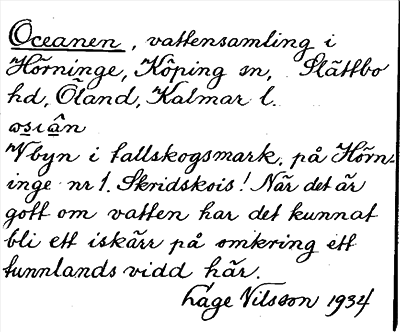 Oceanen, vattensamling i
Hörninge, Köping sn, Slättbo
hd, Öland, Kalmar l.
osiân
V byn i tallskogsmark, på Hörn-
inge nr 1. Skridskois! När det är
gott om vatten har det kunnat
bli ett iskärr på omkring ett
tunnlands vidd här.
Låge Nilsson 1934